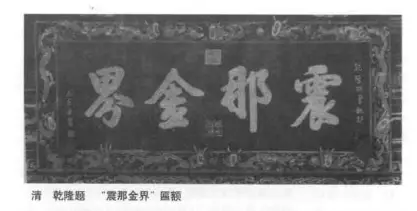 震那金界
清　乾隆题　“震那金界”匾额